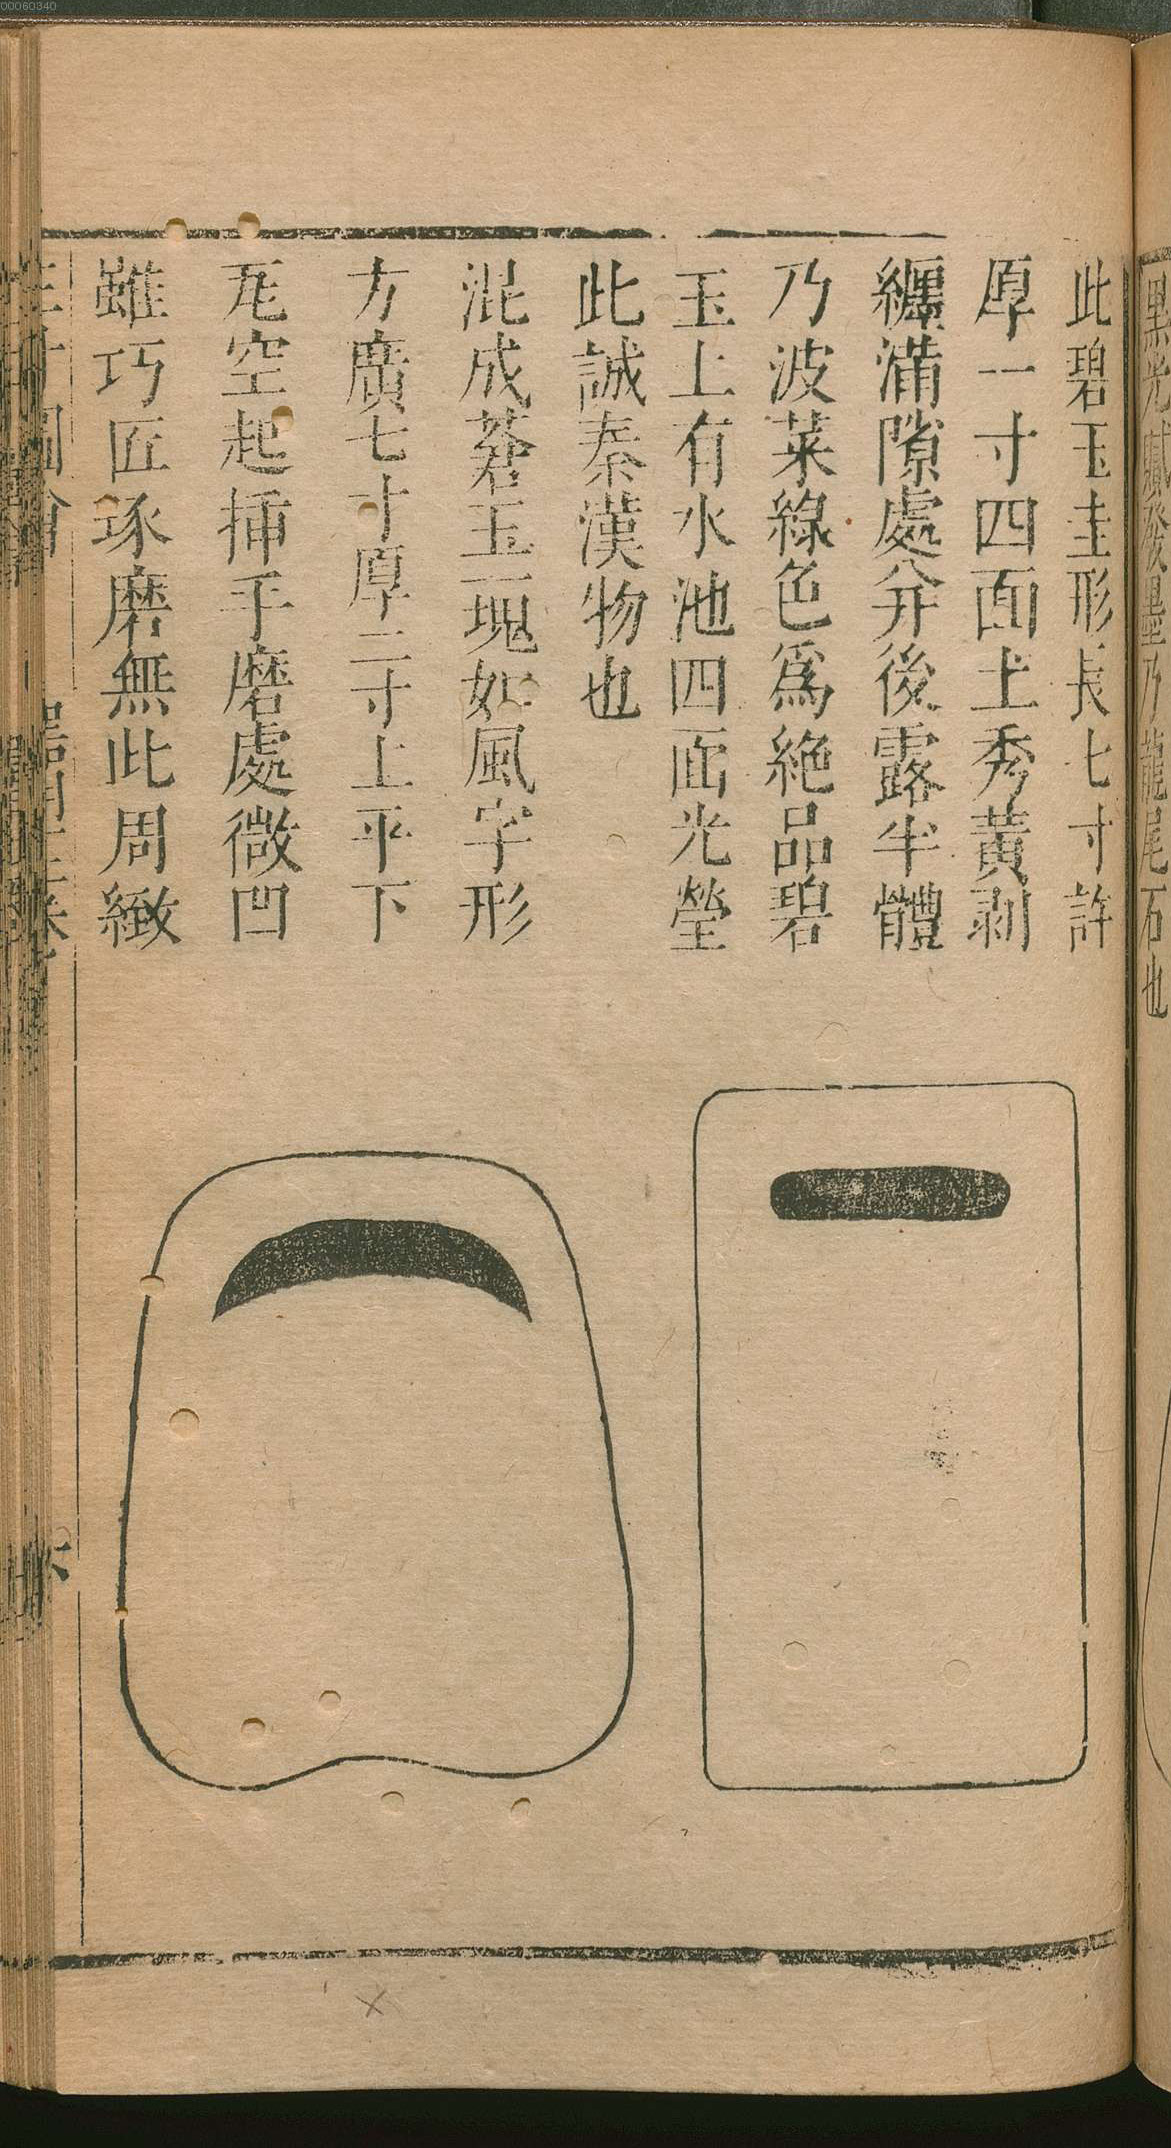 00060340
黑光膩發墨乃龍尾石也
此碧玉圭形長七寸許
厚一寸四面土秀黃剥
纏滿隙處并後露半體
乃波菜綠色爲絶品碧
玉上有水池四面光瑩
此誠秦漢物也
混成蒼玉一塊如風字形
方廣七寸厚二寸上平下
瓦空起揷手磨處微凹
雖巧匠琢磨無此周緻
三才圖會
六